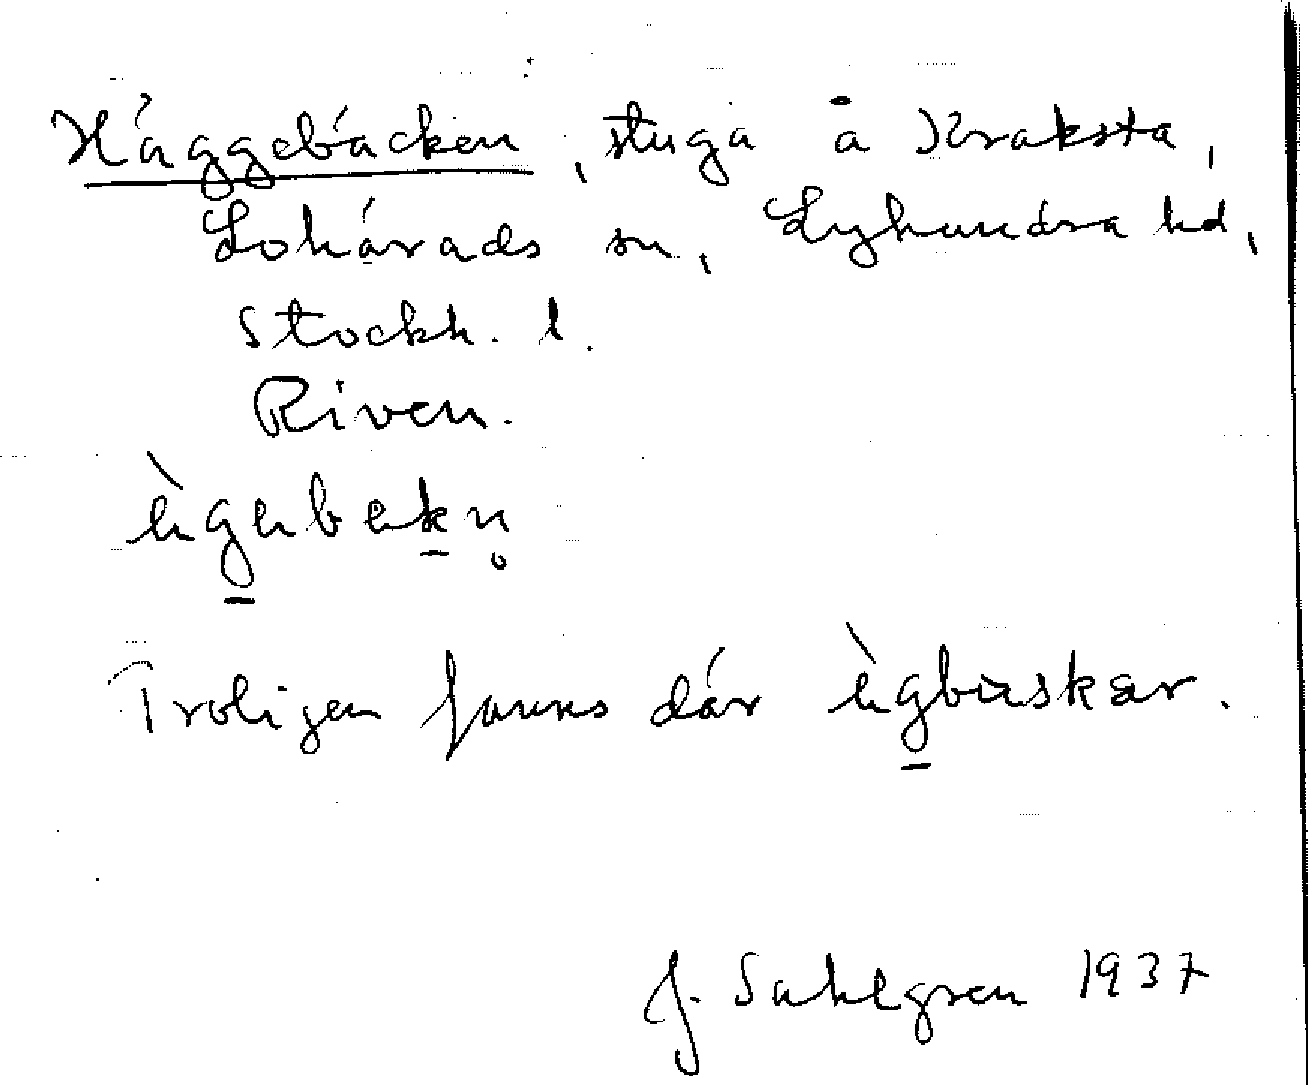 Häggebäcken, stuga å Kraksta,
Lohärads sn, Lyhundra hd,
Stockh. l.
Riven.
Troligen fanns där
J. Sahlgren 1937